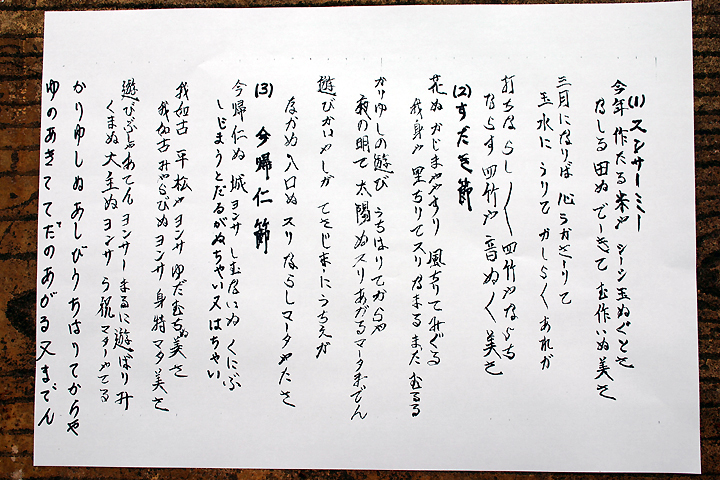 (1) スンサーミー
今年 作たる 米や シーシ玉ぬぐとさ
なしる田ぬ でーきて む作いぬ美さ
三月になりば 心うかさりて
玉水に うりて かしらくあれが
打ちならし〱 四竹やならち
ならす四竹や 音ぬく美さ
(2) すだき節
花ぬかじまややすり 風ちりてみぐる
我身や 里ちりてスリなまる まだむるる
かりゆしの遊び うちはりてからや
夜の明て 太陽ぬスリあがるマータまでん
遊びかいやしが てさじま・にうちえが
なかぬ入口ぬ スリならしマータやたさ
(3) 今帰仁節
今帰仁ぬ 城 ヨンサ しむないぬ くにぶ
しじまうとだるがぬちゃい又はちゃい
我如古 平松やヨンサ ゆだむちぬ美さ
我如古みやらびぬヨンサ 身持マタ美さ
遊びぶしゃあてんヨンサー まるに遊ばりみ
くまぬ大主ぬヨンサ う祝マターやてる
かりゆしぬあしびりちはりてからや
ゆのあきて てだのあがる又までん